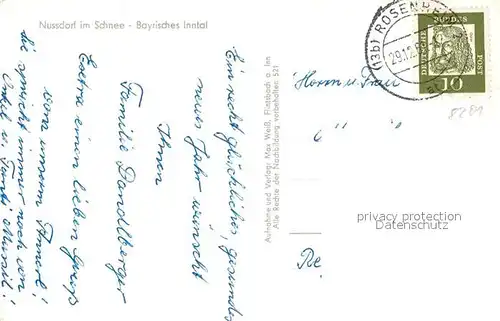 Nussdorf im Schnee - Bayrisches Inntal
Ein recht glückliches, gesundes
neues Jahr wünscht
Ihnen
Familie Dandlberger
Extra einen lieben Gruß
von unserm
sie spricht immer noch von
Onkel u. Tante
Aufnahme und Verlag: Max Weiß, Flintsbach a. Inn
Alle Rechte der Nachbildung vorbehalten 521
(13b) ROSENHE
29.12.
DEUTSCHE
BUNDES
POST
10
8201
Herrn u. Frau
privacy protection
Datenschutz
Re